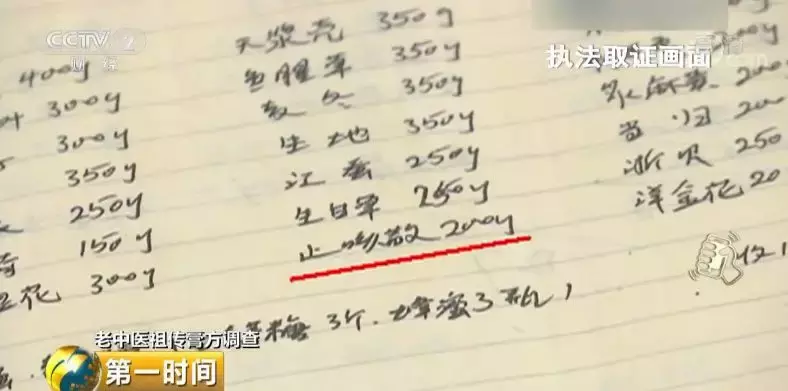 CCTV 2
财经
执法取证画面
天浆壳 350g
400g
鱼腥草 350g
300g
款冬 350g
300g
生地 350g
350g
江蚕 250g
当归 200
250g
生甘草 250g
浙贝 250
150g
止咳散 200g
洋金花 20
花 300g
糖 3个. 蜂蜜 3瓶
老中医祖传膏方调查
第一时间